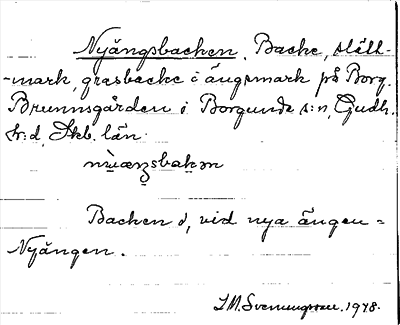 Nyängsbacken. Backe, släll-
-mark, gräsbacke i ängsmark på Borg.
Brunnsgården i Borgunda s:n, Gudh.
hr:d, Skb. län.
Backen ö, vid nya ängen =
Nyängen.
J M. Svenungsson. 1948.